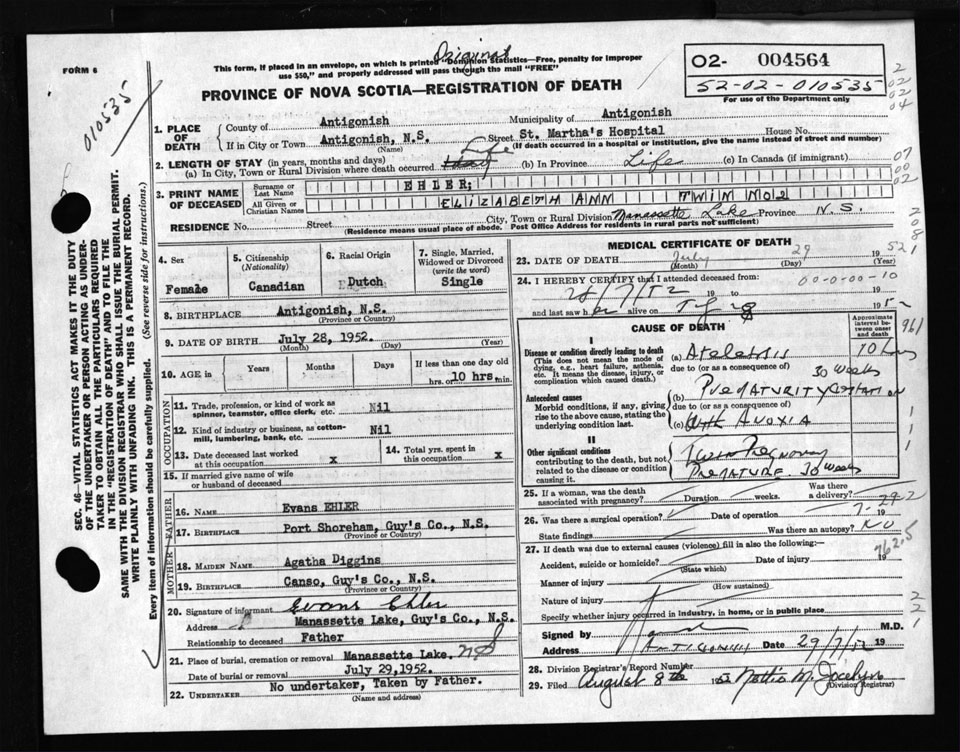 Original
FORM 6
This form, if placed in an envelope, on which is printed "Dominion Statistics—Free, penalty for improper
use $50," and properly addressed will pass through the mail "FREE"
PROVINCE OF NOVA SCOTIA—REGISTRATION OF DEATH
O2- 004564
52-02-010535
For use of the Department only
2
02
02
04
010535
SEC. 46—VITAL STATISTICS ACT MAKES IT THE DUTY
OF THE UNDERTAKER OR PERSON ACTING AS UNDER-
TAKER TO OBTAIN ALL THE PARTICULARS REQUIRED
IN THE "REGISTRATION OF DEATH" AND TO FILE THE
SAME WITH THE DIVISION REGISTRAR WHO SHALL ISSUE THE BURIAL PERMIT.
WRITE PLAINLY WITH UNFADING INK. THIS IS A PERMANENT RECORD.
Every item of information should be carefully supplied. (See reverse side for instructions.)
1. PLACE OF DEATH
County of Antigonish Municipality of Antigonish
If in City or Town Antigonish, N.S. Street St. Martha's Hospital House No.
(Name) (If death occurred in a hospital or institution, give the name instead of street and number)
2. LENGTH OF STAY (in years, months and days)
(a) In City, Town or Rural Division where death occurred Life (b) In Province Life (c) In Canada (if immigrant)
07
00
02
3. PRINT NAME OF DECEASED
Surname or Last Name EHLER;
All Given or Christian Names ELIZABETH ANN TWIN NO 2
RESIDENCE No. Street City, Town or Rural Division Manassette Lake Province N.S.
(Residence means usual place of abode. Post Office Address for residents in rural parts not sufficient)
4. Sex
Female
5. Citizenship
(Nationality)
Canadian
6. Racial Origin
Dutch
7. Single, Married,
Widowed or Divorced
(write the word)
Single
8. BIRTHPLACE Antigonish, N.S.
(Province or Country)
9. DATE OF BIRTH July 28, 1952.
(Month) (Day) (Year)
10. AGE in
Years Months Days If less than one day old
hrs. 10 hrs. min.
OCCUPATION
11. Trade, profession, or kind of work as
spinner, teamster, office clerk, etc. Nil
12. Kind of industry or business, as cotton-
mill, lumbering, bank, etc. Nil
13. Date deceased last worked
at this occupation x
14. Total yrs. spent in
this occupation x
15. If married give name of wife
or husband of deceased
FATHER
16. NAME Evans EHLER
17. BIRTHPLACE Port Shoreham, Guy's Co., N.S.
(Province or Country)
MOTHER
18. MAIDEN NAME Agatha Diggins
19. BIRTHPLACE Canso, Guy's Co., N.S.
(Province or Country)
20. Signature of informant Evans Ehler
Address Manassette Lake, Guy's Co., N.S.
Relationship to deceased Father
21. Place of burial, cremation or removal Manassette Lake. NS
Date of burial or removal July 29,1952.
22. UNDERTAKER No undertaker, Taken by Father.
(Name and address)
MEDICAL CERTIFICATE OF DEATH
23. DATE OF DEATH July 29 1952
(Month) (Day) (Year)
24. I HEREBY CERTIFY that I attended deceased from 00-0-00-10
28/7/52 19 to 19
and last saw her alive on 19
CAUSE OF DEATH
Approximate
interval between
onset and
death
961
I
Disease or condition directly leading to death
(This does not mean the mode of
dying, e.g., heart failure, asthenia,
etc. It means the disease, injury, or
complication which caused death.)
(a) Atelectasis 10 hrs
due to (or as a consequence of) 30 weeks
Antecedent causes
Morbid conditions, if any, giving
rise to the above cause, stating the
underlying condition last.
(b) PREMATURITY GESTATION
due to (or as a consequence of)
(c) With ANOXIA
II
Other significant conditions
contributing to the death, but not
related to the disease or condition
causing it.
Twin Pregnancy
PREMATURE 30 weeks
25. If a woman, was the death
associated with pregnancy? Duration weeks. Was there
a delivery?
26. Was there a surgical operation? Date of operation 7-29-2
State findings Was there an autopsy? NO
27. If death was due to external causes (violence) fill in also the following:—
762.5
Accident, suicide or homicide? Date of injury 19
(State which)
Manner of injury
(How sustained)
Nature of injury
Specify whether injury occurred in industry, in home, or in public place
Signed by M.D.
Address ANTIGONISH Date 29/7/52 19
28. Division Registrar's Record Number
29. Filed August 8th 1952 Nettie M. Jocelyn
(Division Registrar)